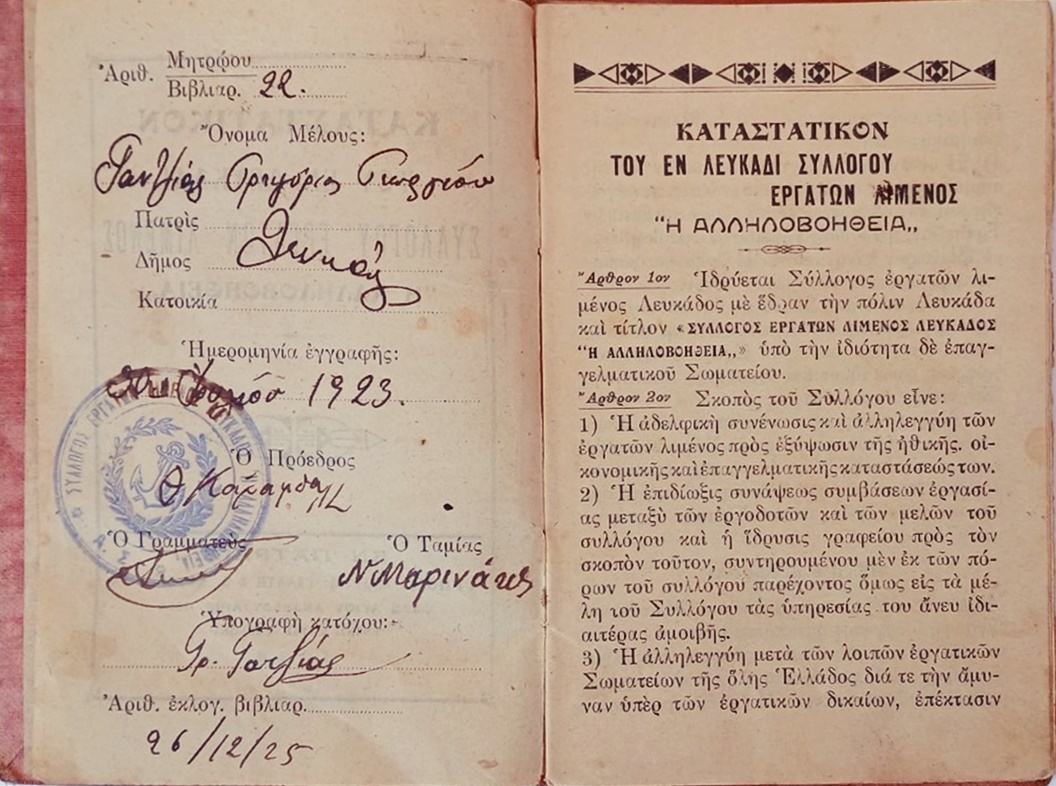 Ἀριθ. Μητρῴου
Βιβλιαρ. 22.
Ὄνομα Μέλους:
Γαντζιάς Γρηγόριος Γεωργίου
Πατρὶς
Δῆμος Λευκάς
Κατοικία
Ἡμερομηνία ἐγγραφῆς:
1923.
Ὁ Πρόεδρος
Ὁ Γραμματεὺς Ὁ Ταμίας
Ν Μαρινάτος
Ὑπογραφὴ κατόχου:
Γρ. Γαντζιάς
Ἀριθ. ἐκλογ. βιβλιαρ.
26/12/25
ΚΑΤΑΣΤΑΤΙΚΟΝ
ΤΟΥ ΕΝ ΛΕΥΚΑΔΙ ΣΥΛΛΟΓΟΥ
ΕΡΓΑΤΩΝ ΛΙΜΕΝΟΣ
"Η ΑΛΛΗΛΟΒΟΗΘΕΙΑ„
Ἄρθρον 1ον Ἱδρύεται Σύλλογος ἐργατῶν λι-
μένος Λευκάδος μὲ ἕδραν τὴν πόλιν Λευκάδα
καὶ τίτλον «ΣΥΛΛΟΓΟΣ ΕΡΓΑΤΩΝ ΛΙΜΕΝΟΣ ΛΕΥΚΑΔΟΣ
"Η ΑΛΛΗΛΟΒΟΗΘΕΙΑ„» ὑπὸ τὴν ἰδιότητα δὲ ἐπαγ-
γελματικοῦ Σωματείου.
Ἄρθρον 2ον Σκοπὸς τοῦ Συλλόγου εἶνε:
1) Ἡ ἀδελφικὴ συνένωσις καὶ ἀλληλεγγύη τῶν
ἐργατῶν λιμένος πρὸς ἐξύψωσιν τῆς ἠθικῆς. οἰ-
κονομικῆς καὶ ἐπαγγελματικῆς καταστάσεώς των.
2) Ἡ ἐπιδίωξις συνάψεως συμβάσεων ἐργασί-
ας μεταξὺ τῶν ἐργοδοτῶν καὶ τῶν μελῶν τοῦ
συλλόγου καὶ ἡ ἵδρυσις γραφείου πρὸς τὸν
σκοπὸν τοῦτον, συντηρουμένου μὲν ἐκ τῶν πό-
ρων τοῦ συλλόγου παρέχοντος ὅμως εἰς τὰ μέ-
λη τοῦ Συλλόγου τὰς ὑπηρεσίας του ἄνευ ἰδι-
αιτέρας ἀμοιβῆς.
3) Ἡ ἀλληλεγγύη μετὰ τῶν λοιπῶν ἐργατικῶν
Σωματείων τῆς ὅλης Ἑλλάδος διά τε τὴν ἄμυ-
ναν ὑπὲρ τῶν ἐργατικῶν δικαίων, ἐπέκτασιν